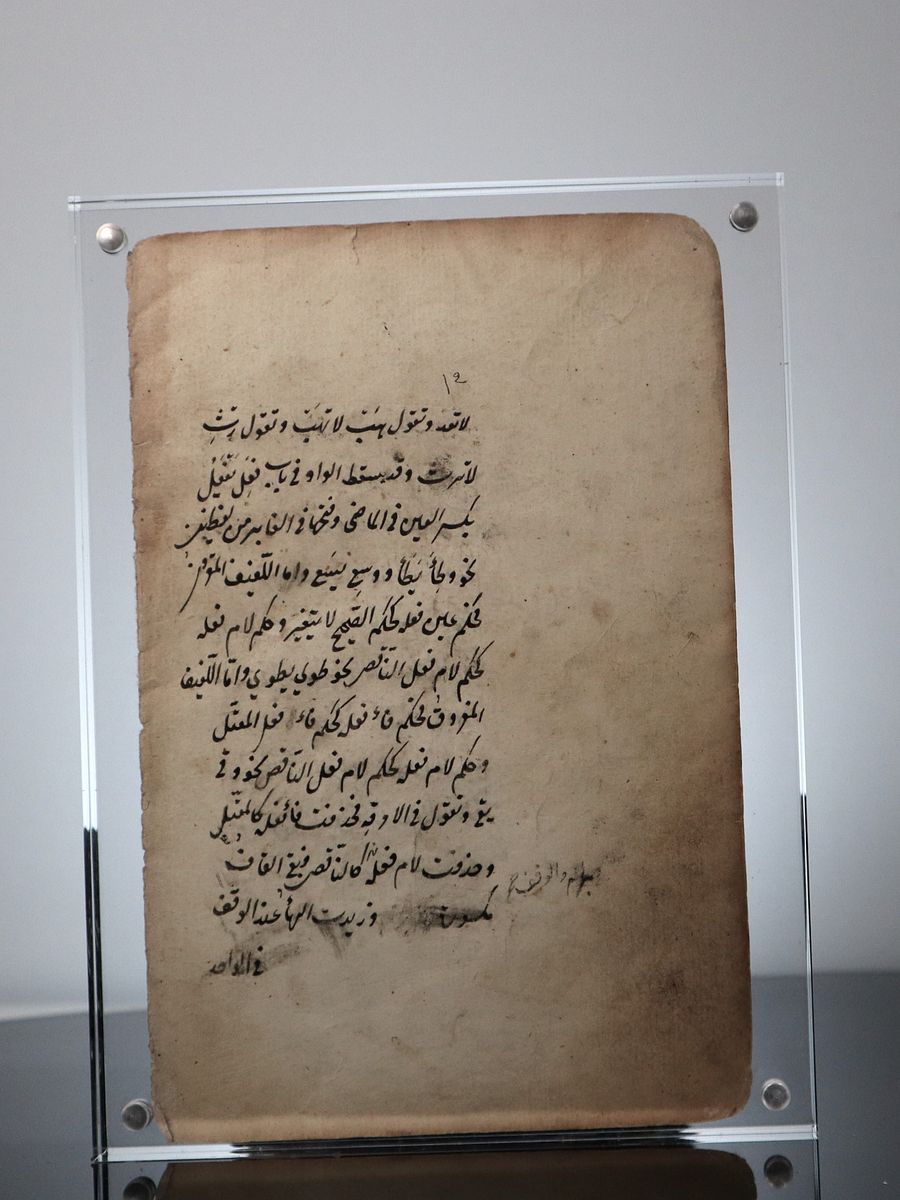 ١٢
لا تعد وتقول هَبْ لا تَهَبْ وتقول رِثْ
لا ترث وقد يسقط الواو في باب فَعِلَ يَفْعَلُ
بكسر العين في الماضي وفتحها في الغابر من لفظين
نحو وَطِأَ يَطَأُ و وَسِعَ يَسَعُ واما اللّفيف المقرون
فحكم عين فعله كحكم الصّحيح لا يتغيّر وحكم لام فعله
كحكم لام فعل النّاقص نحو طوي يطوي وامّا اللّفيف
المفروق فحكم فاء فعله كحكم فاء فعل المعتّل
وحكم لام فعله كحكم لام فعل النّاقص نحو وقي
يقي وتقول في الامر قِه فحذفت فاء فعله كالمعتّل
وحذفت لام فعله كالنّاقص فبقي القاف
مكسورة وزيدت الهاء عند الوقف
في الواحد